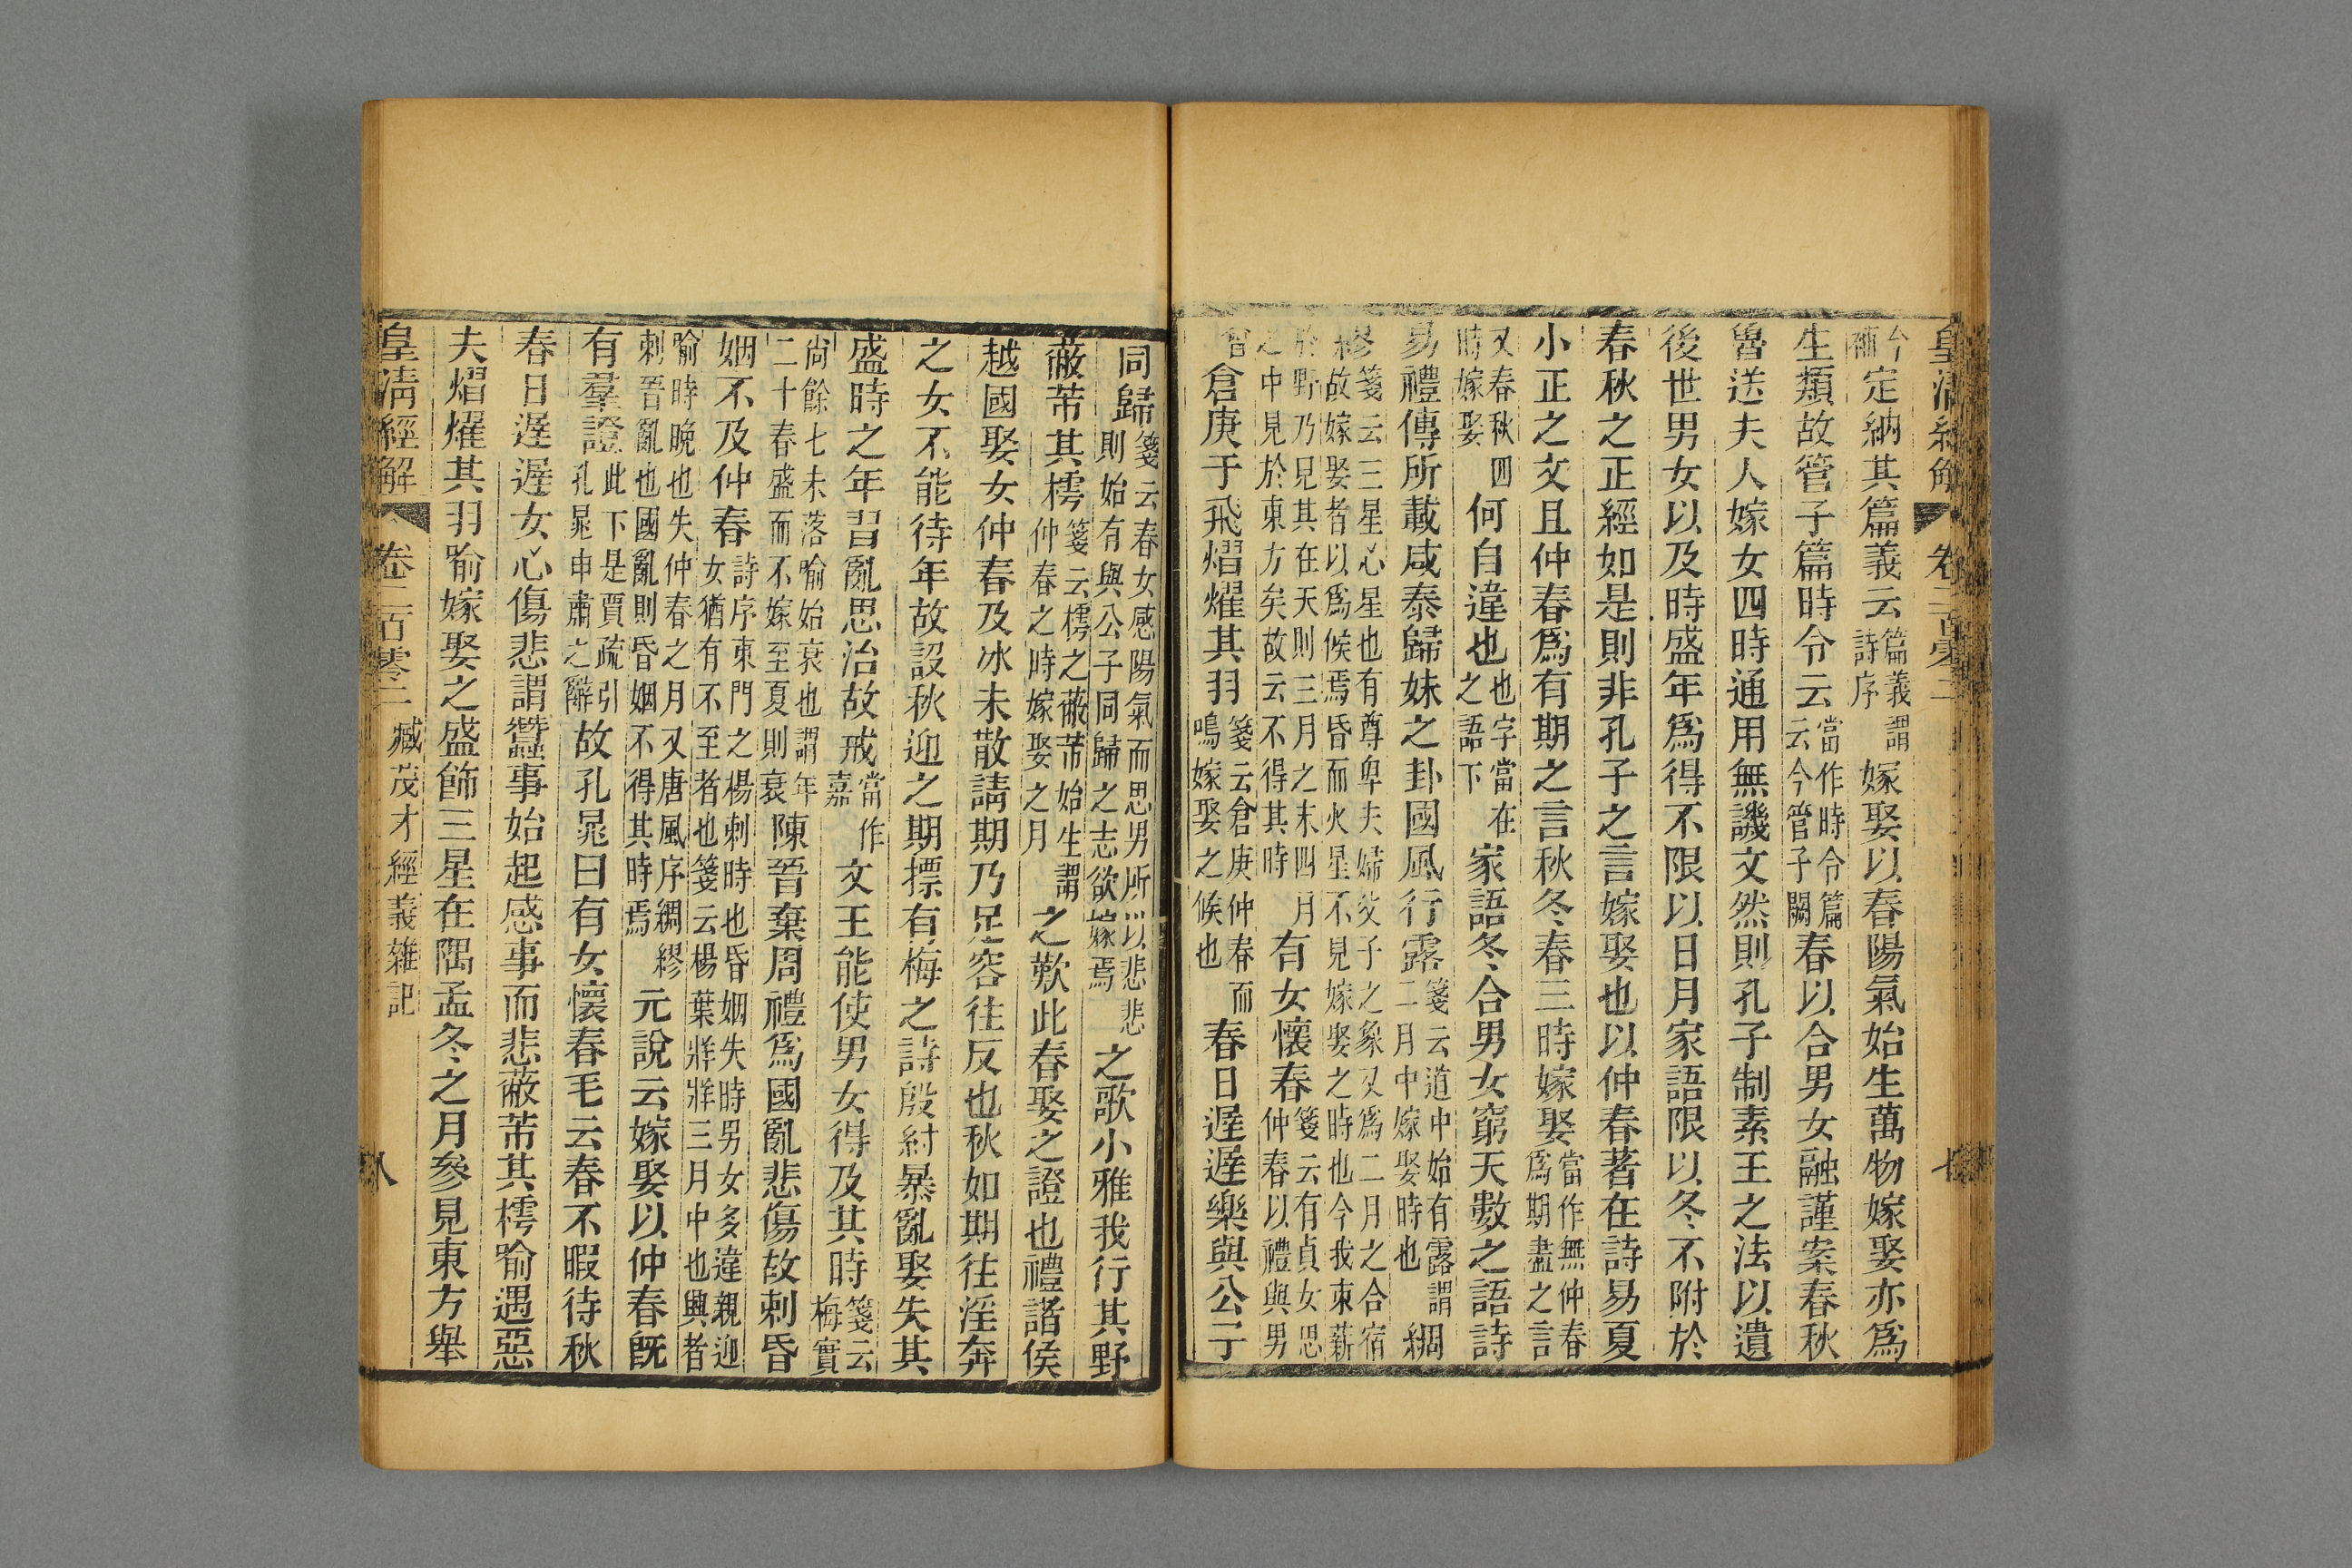 皇清經解 卷二百零二 七
今補定納其篇義云篇義謂詩序嫁娶以春陽氣始生萬物嫁娶亦爲
生類故管子篇時令云當作時令篇云今管子闕春以合男女融謹案春秋
魯送夫人嫁女四時通用無譏文然則孔子制素王之法以遺
後世男女以及時盛年爲得不限以日月家語限以冬不附於
春秋之正經如是則非孔子之言嫁娶也以仲春著在詩易夏
小正之文且仲春爲有期之言秋冬春三時嫁娶當作無仲春爲期盡之言
又春秋四時嫁娶何自違也也字當在之語下家語冬合男女窮天數之語詩
易禮傳所載咸泰歸妹之卦國風行露箋云道中始有露謂二月中嫁娶時也綢
繆箋云三星心星也有尊卑夫婦父子之象又爲二月之合宿故嫁娶者以爲候焉昏而火星不見嫁娶之時也今我束薪
於野乃見其在天則三月之末四月之中見於東方矣故云不得其時有女懷春箋云有貞女思仲春以禮與男
會倉庚于飛熠燿其羽箋云倉庚仲春而鳴嫁娶之候也春日遲遲樂與公子
同歸箋云春女感陽氣而思男所以悲悲則始有與公子同歸之志欲嫁焉之歌小雅我行其野
蔽芾其樗箋云樗之蔽芾始生謂仲春之時嫁娶之月之歎此春娶之證也禮諸侯
越國娶女仲春及冰未散請期乃足容往反也秋如期往淫奔
之女不能待年故設秋迎之期摽有梅之詩殷紂暴亂娶失其
盛時之年習亂思治故戒當作嘉文王能使男女得及其時箋云梅實
尚餘七未落喻始衰也謂年二十春盛而不嫁至夏則衰陳晉棄周禮爲國亂悲傷故刺昏
姻不及仲春詩序東門之楊刺時也昏姻失時男女多違親迎女猶有不至者也箋云楊葉牂牂三月中也興者
喻時晚也失仲春之月又唐風序綢繆刺晉亂也國亂則昏姻不得其時焉元說云嫁娶以仲春既
有羣證此下是賈疏引孔晁申肅之辭故孔晁曰有女懷春毛云春不暇待秋
春日遲遲女心傷悲謂蠶事始起感事而悲蔽芾其樗喻遇惡
夫熠燿其羽喻嫁娶之盛飾三星在隅孟冬之月參見東方舉
皇清經解 卷二百零二 臧茂才經義雜記 八